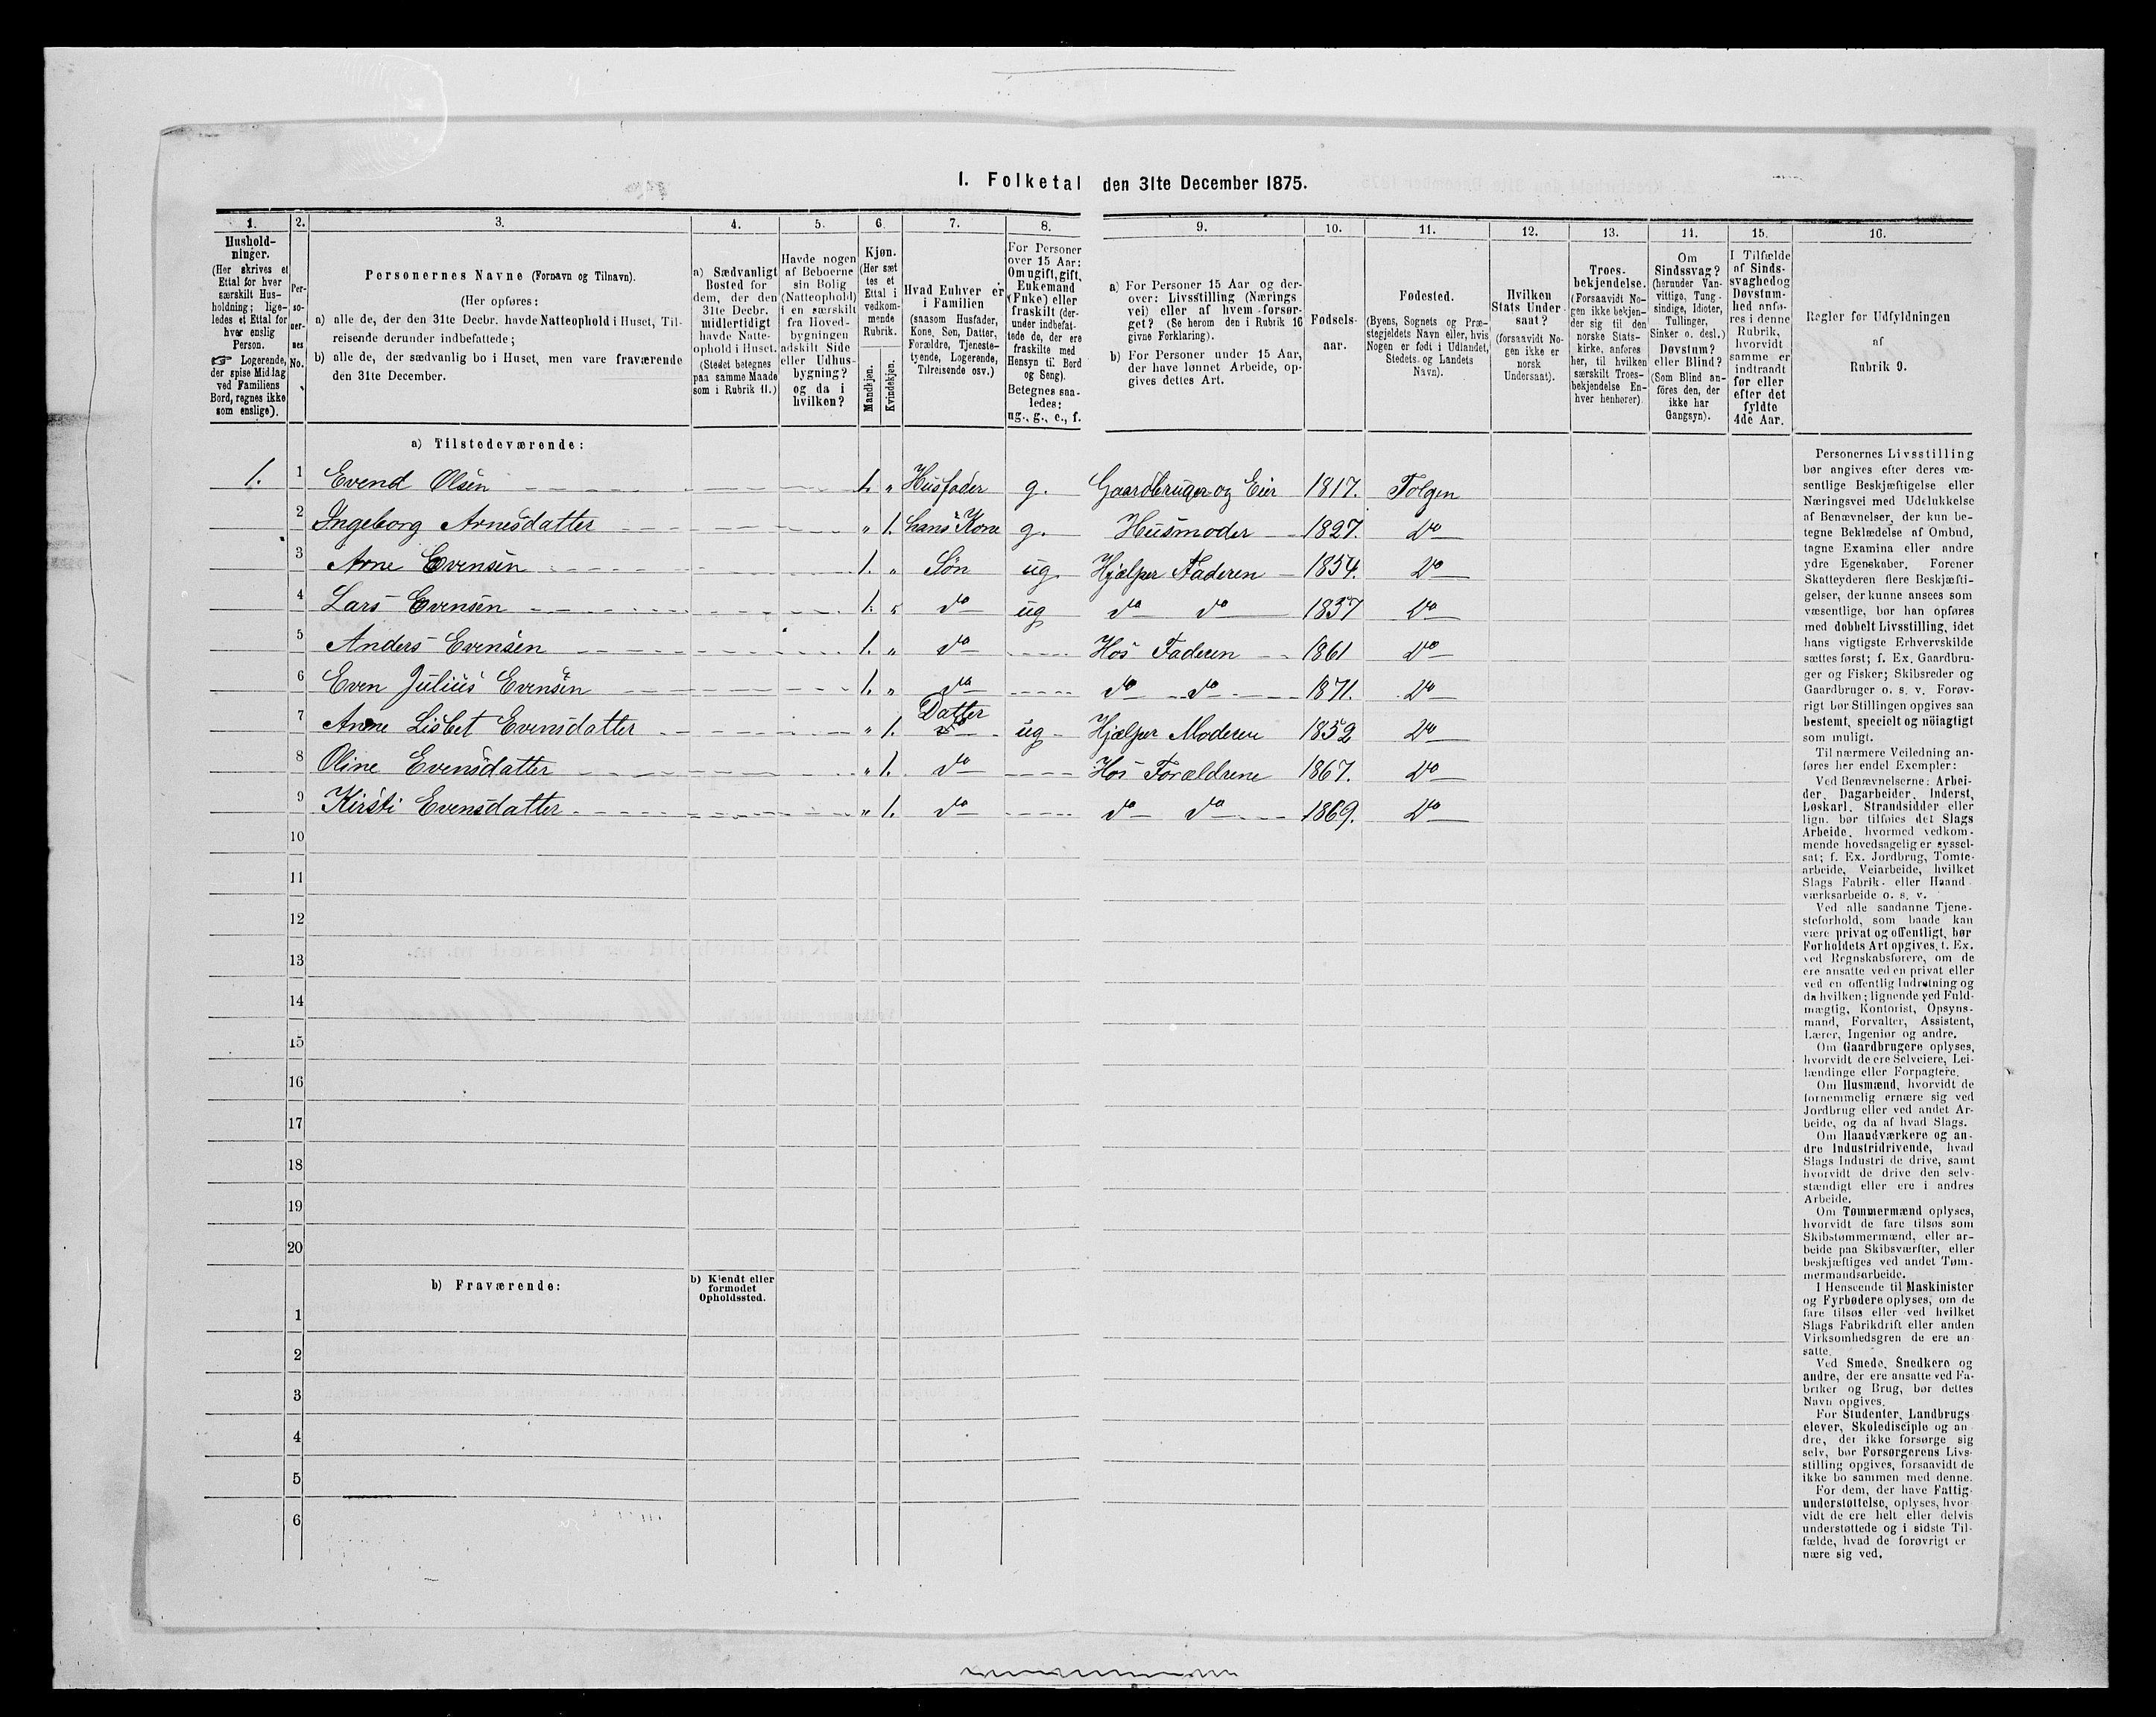 I. Folketal den 31te December 1875.
1.
Hushold-
ninger.
(Her skrives et
Ettal for hver
særskilt Hus-
holdning; lige-
ledes et Ettal for
hver enslig
Person.
☞ Logerende,
der spise Middag
ved Familiens
Bord, regnes ikke
som enslige).
2.
Per-
so-
ner-
nes
No.
3.
Personernes Navne (Fornavn og Tilnavn).
(Her opføres:
a) alle de, der den 31te Decbr. havde Natteophold i Huset, Til-
reisende derunder indbefattede;
b) alle de, der sædvanlig bo i Huset, men vare fraværende
den 31te December.
4.
a) Sædvanligt
Bosted for
dem, der den
31te Decbr.
midlertidigt
havde Natte-
ophold i Huset.
(Stedet betegnes
paa samme Maade
som i Rubrik 11.)
5.
Havde nogen
af Beboerne
sin Bolig
(Natteophold)
i en særskilt
fra Hoved-
bygningen
adskilt Side
eller Udhus-
bygning?
og da i
hvilken?
6.
Kjøn.
(Her sæt
tes et
Ettal i
vedkom-
mende
Rubrik.
Mandkjøn.
Kvindekjøn.
7.
Hvad Enhver er
i Familien
(saasom Husfader,
Kone, Søn, Datter,
Forældre, Tjeneste-
tyende, Logerende,
Tilreisende osv.)
8.
For Personer
over 15 Aar:
Om ugift, gift,
Enkemand
(Enke) eller
fraskilt (der-
under indbefat-
tede de, der ere
fraskilte med
Hensyn til Bord
og Seng).
Betegnes saa-
ledes:
ug., g., e., f.
9.
a) For Personer 15 Aar og der-
over: Livsstilling (Nærings
vei) eller af hvem forsør-
get? (Se herom den i Rubrik 16
givne Forklaring).
b) For Personer under 15 Aar,
der have lønnet Arbeide, op-
gives dettes Art.
10.
Fødsels-
aar.
11.
Fødested.
(Byens, Sognets og Præ-
stegjeldets Navn eller, hvis
Nogen er født i Udlandet,
Stedets og Landets
Navn).
12.
Hvilken
Stats Under
saat?
(forsaavidt No-
gen ikke er
norsk
Undersaat).
13.
Troes-
bekjendelse.
(Forsaavidt No-
gen ikke bekjen-
der sig til den
norske Stats-
kirke, anføres
her, til hvilken
særskilt Troes-
bekjendelse En-
hver henhører)
14.
Om
Sindssvag?
(herunder Van-
vittige, Tung-
sindige, Idioter,
Tullinger,
Sinker o. desl.)
Døvstum?
eller Blind?
(Som Blind an-
føres den, der
ikke har
Gangsyn).
15.
I Tilfælde
af Sinds-
svaghed og
Døvstum-
hed anfø-
res i denne
Rubrik,
hvorvidt
samme er
indtraadt
før eller
efter det
fyldte
4de Aar.
16.
Regler for Udfyldningen
af
Rubrik 9.
a) Tilstedeværende:
1. 1 Evend Olsen 1. „ Husfader g. Gaardbruger og Eier 1817. Tolgen
2 Ingeborg Arnesdatter „ 1. hans Kone g. Husmoder 1827. Do
3 Arne Evensen 1. „ Søn ug. Hjælper Faderen 1854. Do
4 Lars Evensen 1. „ do ug do do 1857 Do
5 Anders Evensen 1. „ do Hos Faderen 1861 Do
6 Even Julius Evensen 1. „ do do do 1871. Do
7 Anne Lisbet Evensdatter „ 1. Datter ug Hjælper Moderen 1852 Do
8 Oline Evensdatter „ 1. do Hos Forældrene 1867. Do
9 Kirsti Evensdatter „ 1. do do do 1869. Do
10
11
12
13
14
15
16
17
18
19
20
b) Fraværende:
b) Kjendt eller
formodet
Opholdssted.
1
2
3
4
5
6
Personernes Livsstilling
bør angives efter deres væ-
sentlige Beskjæftigelse eller
Næringsvei med Udelukkelse
af Benævnelser, der kun be-
tegne Beklædelse af Ombud,
tagne Examina eller andre
ydre Egenskaber. Forener
Skatteyderen flere Beskjæfti-
gelser, der kunne ansees som
væsentlige, bør han opføres
med dobbelt Livsstilling, idet
hans vigtigste Erhvervskilde
sættes først; f. Ex. Gaardbru-
ger og Fisker; Skibsreder og
Gaardbruger o. s. v. Forøv-
rigt bør Stillingen opgives saa
bestemt, specielt og nöiagtigt
som muligt.
Til nærmere Veiledning an-
føres her endel Exempler:
Ved Benævnelserne: Arbei-
der, Dagarbeider, Inderst,
Løskarl, Strandsidder eller
lign. bør tilføies det Slags
Arbeide, hvormed vedkom-
mende hovedsagelig er syssel-
sat; f. Ex. Jordbrug, Tomte-
arbeide, Veiarbeide, hvilket
Slags Fabrik- eller Haand-
værksarbeide o. s. v.
Ved alle saadanne Tjene-
steforhold, som baade kan
være privat og offentligt, bør
Forholdets Art opgives, f. Ex.
ved Regnskabsførere, om de
ere ansatte ved en privat eller
ved en offentlig Indretning og
da hvilken; lignende ved Fuld-
mægtig, Kontorist, Opsyns-
mand, Forvalter, Assistent,
Lærer, Ingeniør og andre.
Om Gaardbrugere oplyses,
hvorvidt de ere Selveiere, Lei-
lændinge eller Forpagtere.
Om Husmænd, hvorvidt de
fornemmelig ernære sig ved
Jordbrug eller ved andet Ar-
beide, og da af hvad Slags.
Om Haandværkere og an-
dre Industridrivende, hvad
Slags Industri de drive, samt
hvorvidt de drive den selv-
stændigt eller ere i andres
Arbeide.
Om Tømmermænd oplyses,
hvorvidt de fare tilsøs som
Skibstømmermænd, eller ar-
beide paa Skibsværfter, eller
beskjæftiges ved andet Tøm-
mermandsarbeide.
I Henseende til Maskinister
og Fyrbødere oplyses, om de
fare tilsøs eller ved hvilket
Slags Fabrikdrift eller anden
Virksomhedsgren de ere an-
satte.
Ved Smede, Snedkere og
andre, der ere ansatte ved Fa-
briker og Brug, bør dettes
Navn opgives.
For Studenter, Landbrugs
elever, Skoledisciple og an-
dre, der ikke forsørge sig
selv, bør Forsørgerens Livs-
stilling opgives, forsaavidt de
ikke bo sammen med denne.
For dem, der have Fattig-
understøttelse, oplyses, hvor
vidt de ere helt eller delvis
understøttede og i sidste Til-
fælde, hvad de forøvrigt er
nære sig ved.